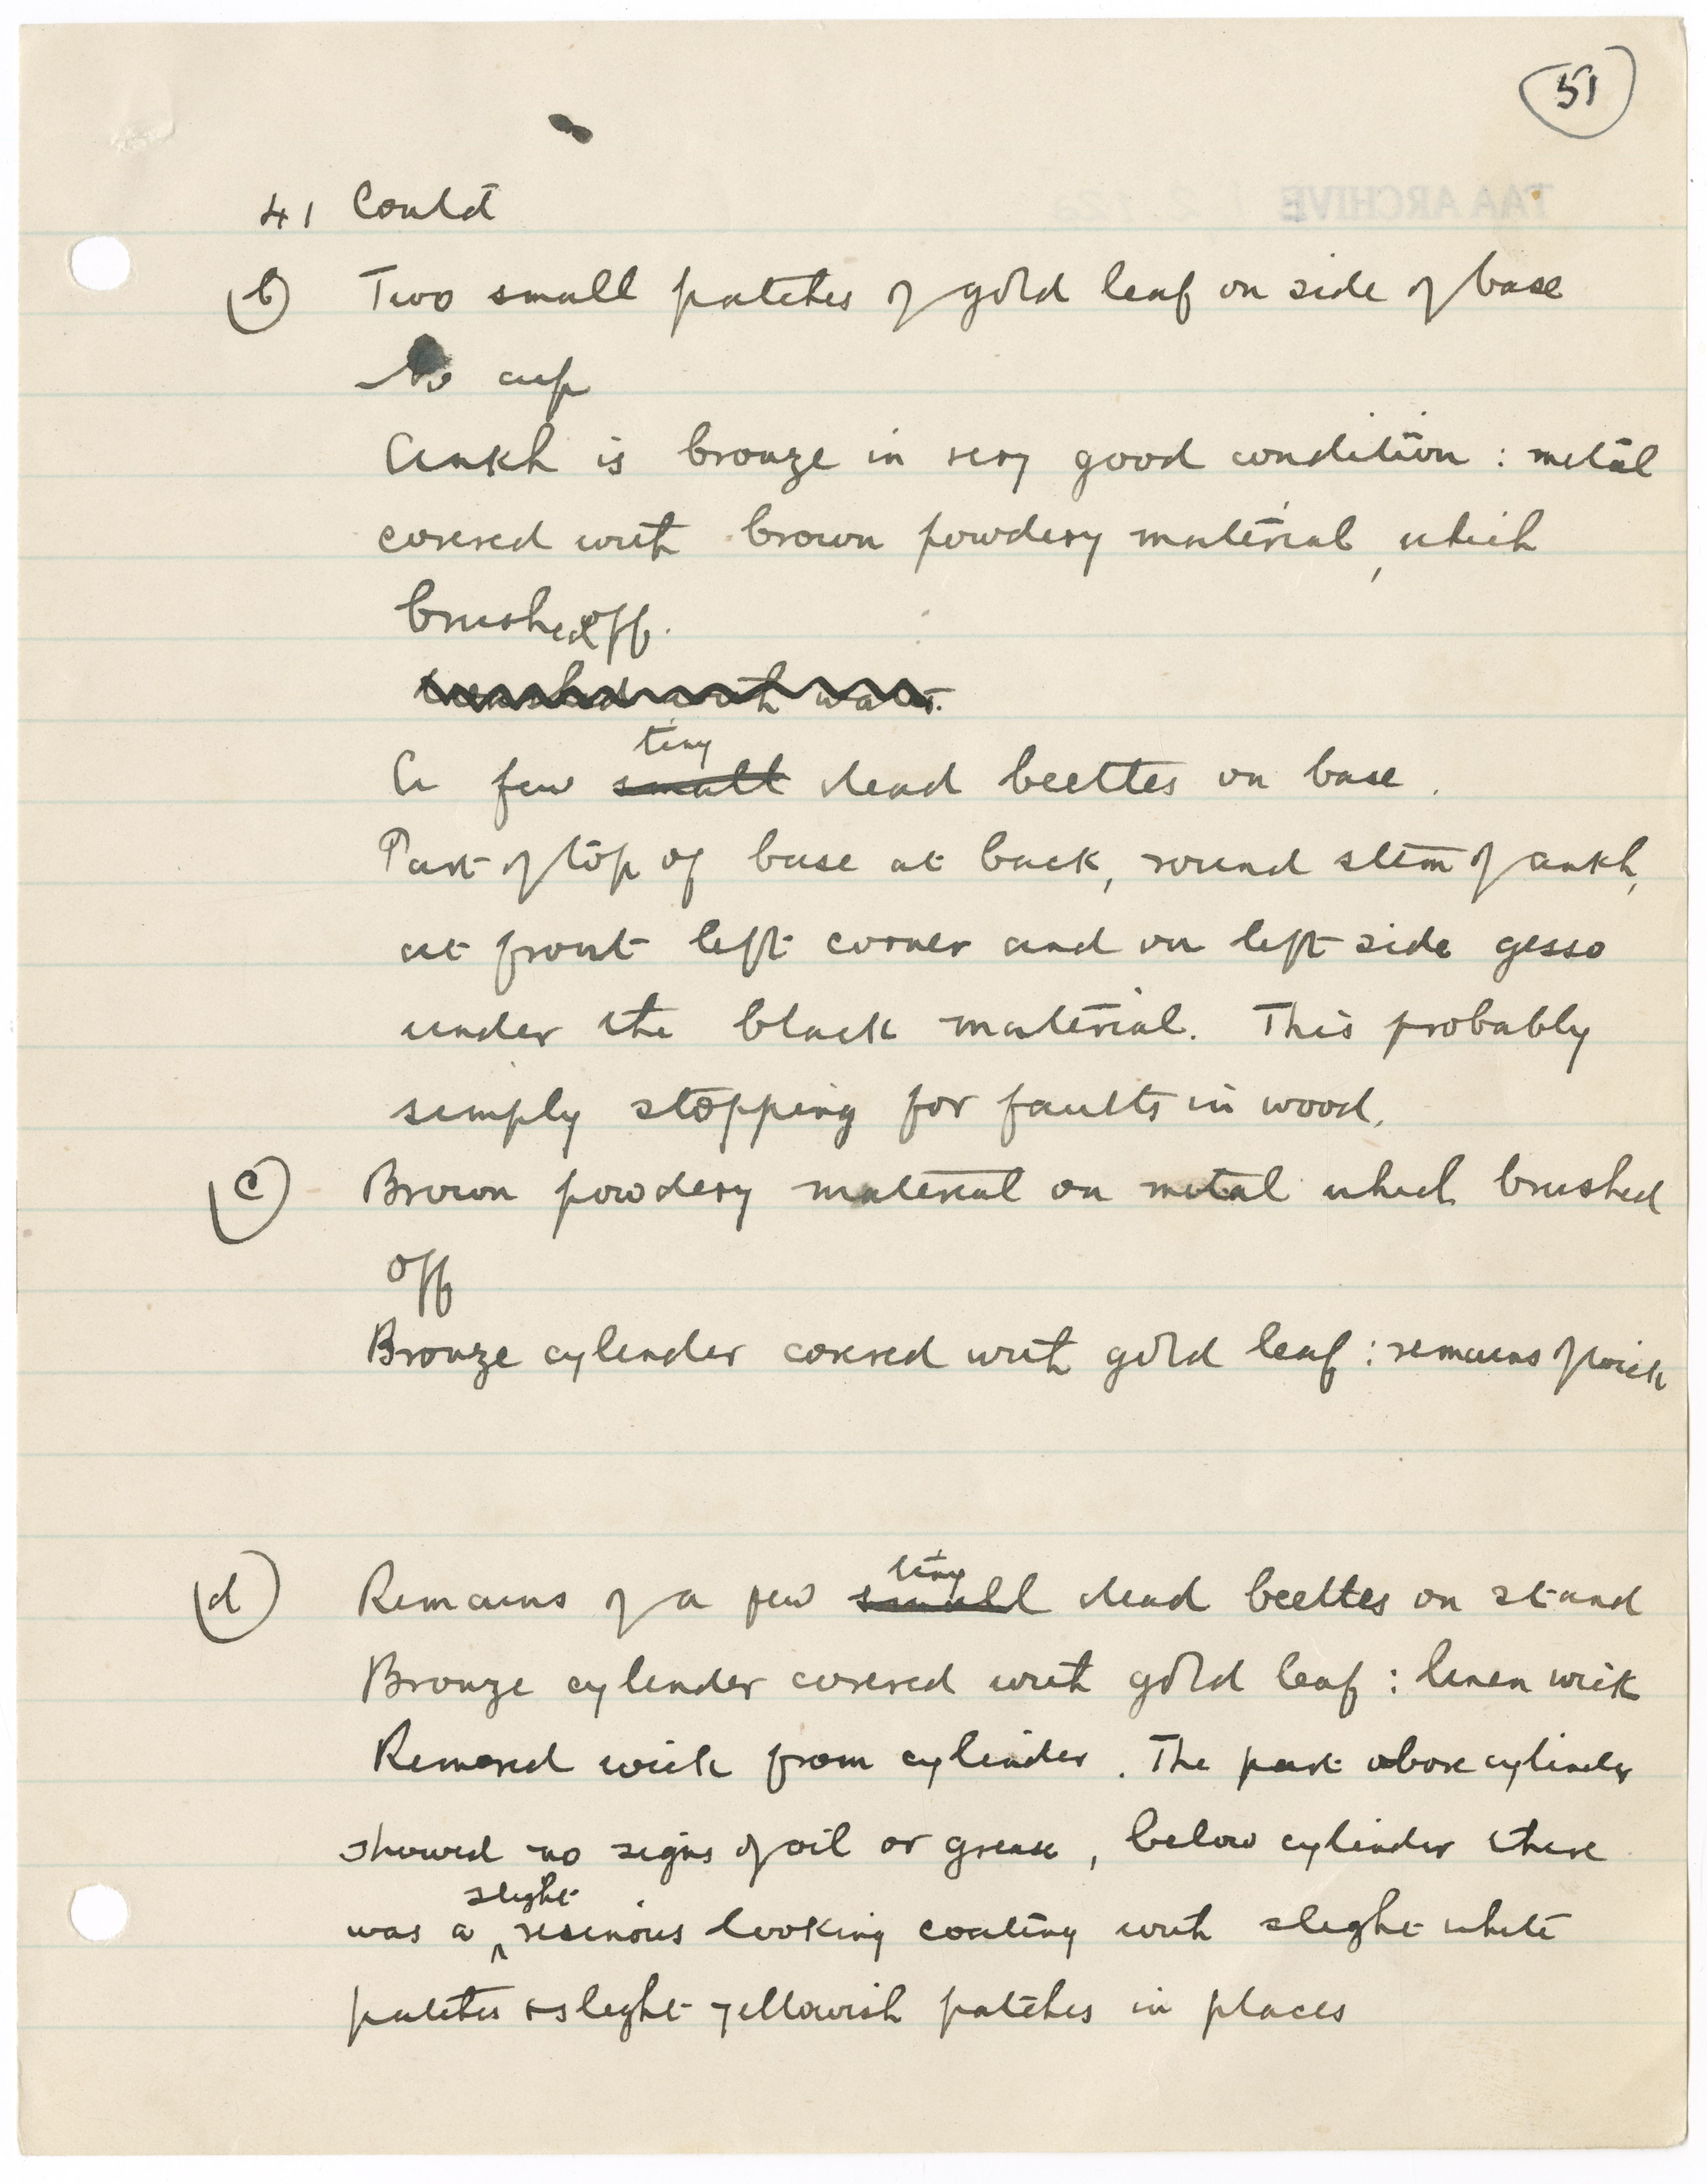 51
TAA ARCHIVE
41 Contd
(b) Two small patches of gold leaf on side of base
No cup
Ankh is bronze in very good condition : metal
covered with brown powdery material, which
brushed off.
brushed with water.
tiny
A few small dead beetles on base.
Part of top of base at back, round stem of ankh,
at front left corner and on left side gesso
under the black material. This probably
simply stopping for faults in wood.
(c) Brown powdery material on metal which brushed
off
Bronze cylinder covered with gold leaf : remains of wick
tiny
(d) Remains of a few small dead beetles on stand
Bronze cylinder covered with gold leaf : linen wick
Removed wick from cylinder. The part above cylinder
showed no signs of oil or grease, below cylinder there
slight
was a ^ resinous looking coating with slight white
patches & slight yellowish patches in places